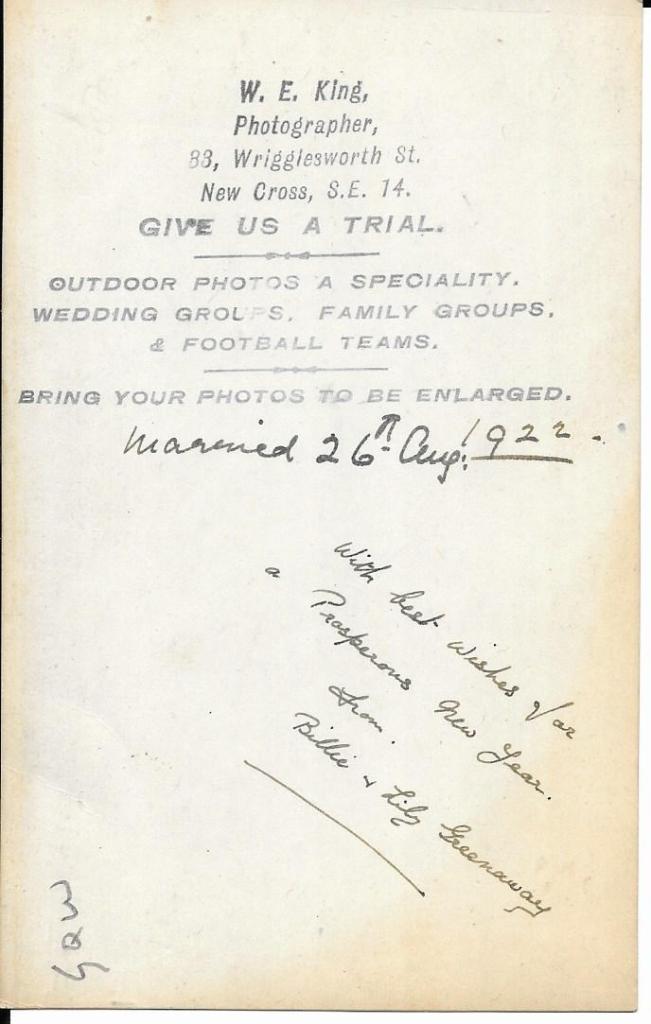 W. E. King,
Photographer,
83, Wrigglesworth St.
New Cross, S.E. 14.
GIVE US A TRIAL.
OUTDOOR PHOTOS A SPECIALITY.
WEDDING GROUPS, FAMILY GROUPS,
& FOOTBALL TEAMS.
BRING YOUR PHOTOS TO BE ENLARGED.
Married 26th Aug: 1922.
With best wishes for
a Prosperous New Year.
from.
Billie & Lily Greenaway